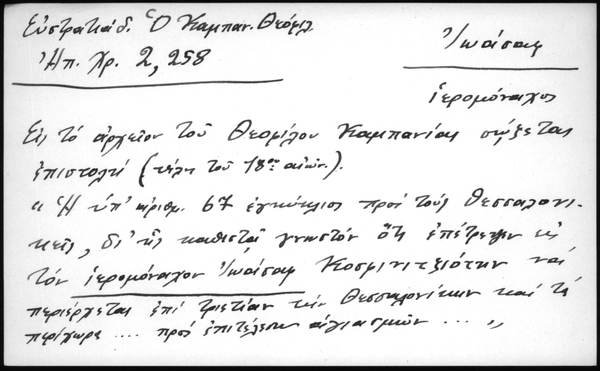 Εὐστρατιάδ. Ὁ Καμπαν. Θεόφιλ.
Ἠπ. Χρ. 2, 258
Ἰωάσαφ
ἱερομόναχος
Εἰς τὸ ἀρχεῖον τοῦ Θεοφίλου Καμπανίας σῴζεται
ἐπιστολή (τέλη τοῦ 18ου αἰών.).
« Ἡ ὑπ' ἀριθμ. 67 ἐγκύκλιος πρὸς τοὺς Θεσσαλονι-
κεῖς, δι' ἧς καθιστᾷ γνωστὸν ὅτι ἐπέτρεψεν εἰς
τὸν ἱερομόναχον Ἰωάσαφ Κοσμινιτζιώτην νὰ
περιέρχεται ἐπὶ τριετίαν τὴν Θεσσαλονίκην καὶ τὰ
περίχωρα .... πρὸς ἐπιτέλεσιν ἁγιασμῶν ... »